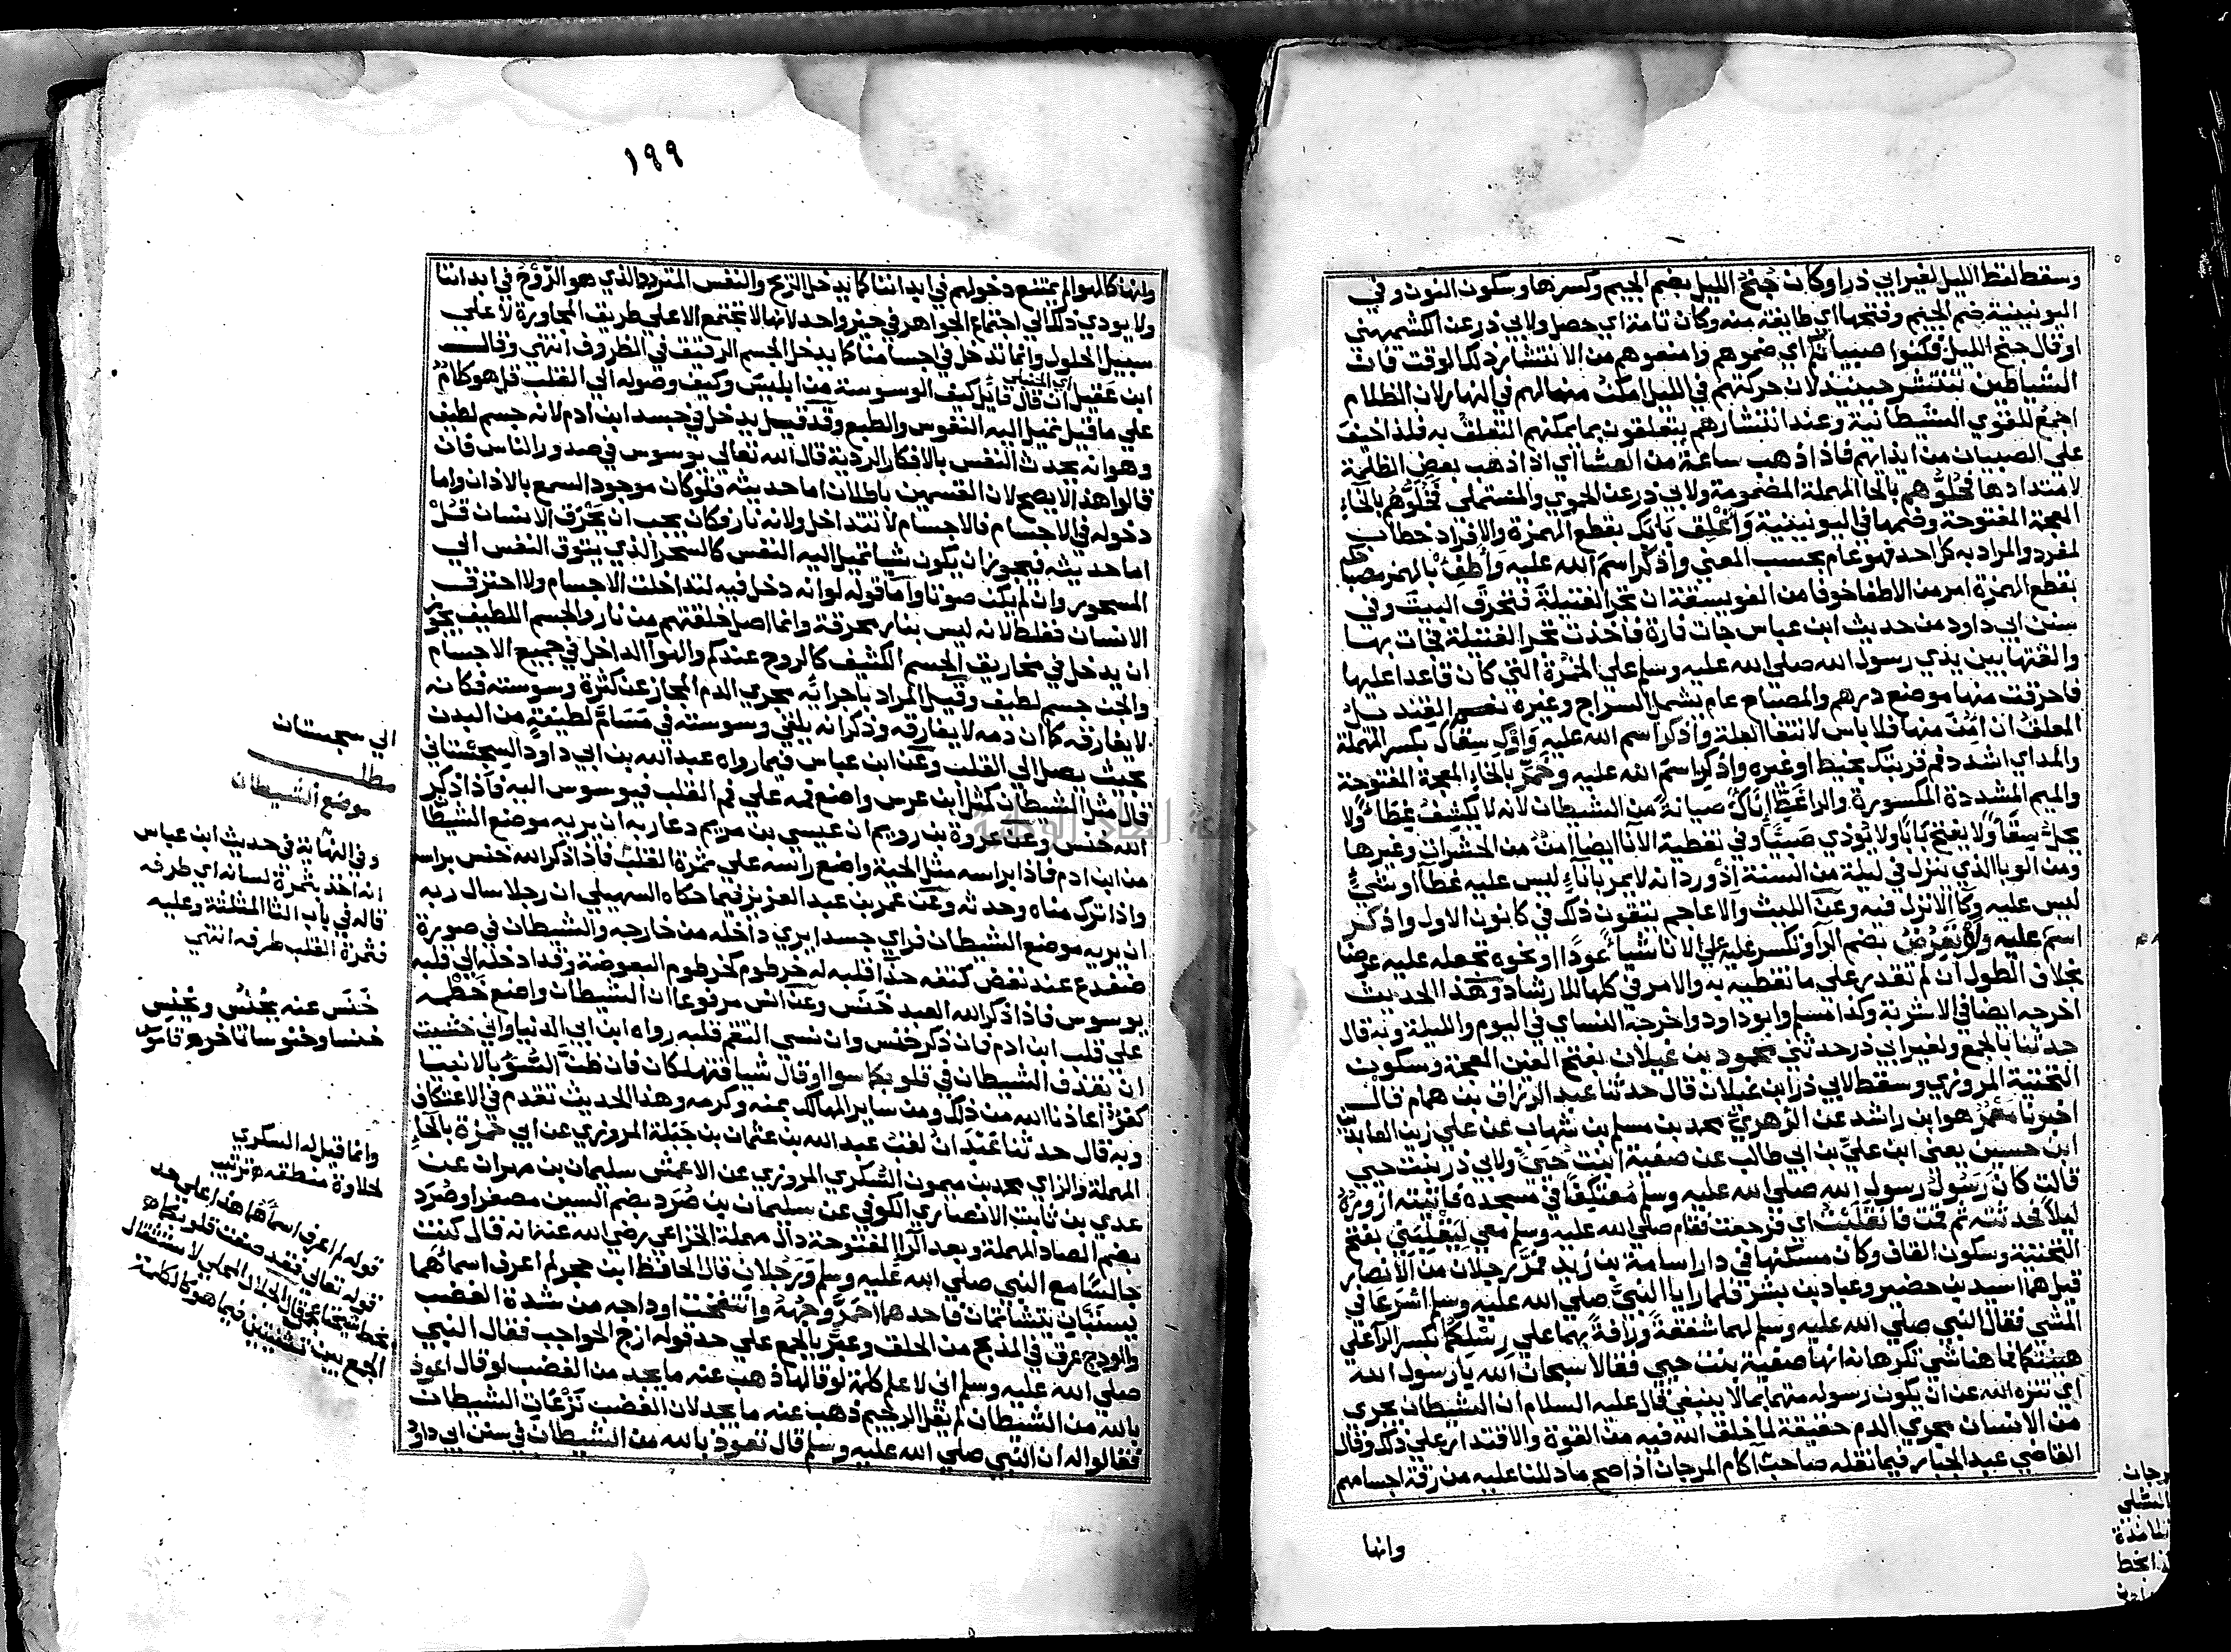 وسقط لفظ الليل لغير ابي ذر او كان جنح الليل بضم الجيم وكسرها وسكون النون وفي
اليونينية ضم الجيم وفتحها اي طايفة منه وكان تامة اي حصل ولابي ذر عن الكشميهني
او قال جنح الليل فكفوا صبيانكم اي ضموهم وامنعوهم من الانتشار ذلك الوقت فان
الشياطين تنتشر حينيذ لان حركتهم في الليل امكن منها لهم في النهار لان الظلام
اجمع للقوي الشيطانية وعند انتشارهم يتعلقون بما يمكنهم التعلق به فلذا خيف
علي الصبيان من ايذايهم فاذا ذهب ساعة من العشا اي اذا ذهب بعض الظلمة
لامتدادها فحلوهم بالحا المهملة المضمومة ولابي ذر عن الحموي والمستملي فخلوهم بالخاء
المعجمة المفتوحة وضمها في اليونينية واغلق بابك بقطع الهمزة والافراد خطاب
لمفرد والمراد به كل احد فهو عام بحسب المعني واذكر اسم الله عليه واطف بالهمز مصباحك
بقطع الهمزة امر من الاطفا خوفا من الفويسقة ان تجر الفتيلة فتحرق البيت وفي
سنن ابي داود من حديث ابن عباس جات فارة فاخذت تجر الفتيلة فجات بها
والقتها بين يدي رسول الله صلي الله عليه وسلم علي الخمرة التي كان قاعدا عليها
فاحرقت منها موضع درهم والمصباح عام يشمل السراج وغيره نعم القنديل
المعلق ان امن منها فلا باس لانتفا العلة واذكر اسم الله عليه واوك سقاك بكسر المهملة
والمد اي اشدد فم قربتك بخيط او غيره واذكر اسم الله عليه وخمر بالخاء المعجمة المفتوحة
والميم المشددة المكسورة والرا غط اناك صيانة من الشيطان لانه لا يكشف غطا ولا
يحل سقا ولا يفتح بابا ولا يوذي صبيا وفي تغطية الانا ايضا امن من الحشرات وغيرها
ومن الوبا الذي ينزل في ليلة من السنة اذ ورد انه لا يمر باناء ليس عليه غطا او شي
ليس عليه وكا الا نزل فيه وعن الليث والاعاجم يتقون ذلك في كانون الاول واذكر
اسم عليه ولو تعرض بضم الرا وتكسر عليه علي الانا شيا عودا او نحوه تجعله عليه عرضا
بخلاف الطول ان لم تقدر علي ما تغطيه به والامر في كلها للارشاد وهذا الحديث
اخرجه ايضا في الاشربة وكذا مسلم وابو داود واخرجه النساي في اليوم والليلة وبه قال
حدثنا بالجمع ولغير ابي ذر حدثني محمود بن غيلان بفتح الغين المعجمة وسكون
التحتية المروزي وسقط لابي ذر ابن غيلان قال حدثنا عبد الرزاق بن همام قال
اخبرنا معمر هو ابن راشد عن الزهري محمد بن مسلم بن شهاب عن علي زين العابدين
ابن حسين يعني ابن علي بن ابي طالب عن صفية ابنت حيي ولابي ذر بنت حيي
قالت كان رسول رسول الله صلي الله عليه وسلم معتكفا في مسجده فاتيته ازوره
ليلا فحدثته ثم قمت فانقلبت اي فرجعت فقام صلي الله عليه وسلم معي ليقلبني بفتح
التحتية وسكون القاف وكان مسكنها في دار اسامة بن زيد فمر رجلان من الانصار
قيل هما اسيد بن حضير وعباد بن بشر فلما رايا النبي صلي الله عليه وسلم اسرعا في
المشي فقال النبي صلي الله عليه وسلم لهما شفقة ورافة بهما علي رسلكما بكسر الرا علي
هينتكما فما هنا شي تكرهانه انها صفية بنت حيي فقالا سبحان الله يا رسول الله
اي تنزه الله عن ان يكون رسوله متهما بما لا ينبغي قال عليه السلام ان الشيطان يجري
من الانسان مجري الدم حقيقة لما خلق الله فيه من القوة والاقتدار علي ذلك وقال
القاضي عبد الجبار فيما نقله صاحب آكام المرجان اذا صح ما دللنا عليه من رقة اجسامهم
وانها
١٩٩
وانها كالهوا لم يمتنع دخولهم في ابداننا كما يدخل الريح والنفس المتردد الذي هو الروح في ابداننا
ولا يودي ذلك الي اجتماع الجواهر في حيز واحد لانها لا تجتمع الا علي طريق المجاورة لا علي
سبيل الحلول وانما تدخل في اجسامنا كما يدخل الجسم الرقيق في المظروف انتهي وقال
ابن عقيل اي الحنبلي ان قال قايل كيف الوسوسة من ابليس وكيف وصوله الي القلب قل هو كلام
علي ما قيل تميل اليه النفوس والطبع وقد قيل يدخل في جسد ابن ادم لانه جسم لطيف
وهو انه يحدث النفس بالافكار الردية قال الله تعالي يوسوس في صدور الناس فان
قالوا هذا لا يصح لان القسمين باطلان اما حديثه فلو كان موجود السمع بالاذان واما
دخوله في الاجسام فالاجسام لا تتداخل ولانه نار فكان يجب ان يحرق الانسان قل
اما حديثه فيجوز ان يكون شيا تميل اليه النفس كالسحر الذي يتوق النفس الي
المسحور وان لم يكن صوتا واما قوله لو انه دخل فيه لتداخلت الاجسام ولاحترق
الانسان فغلط لانه ليس بنار محرقة وانما اصل خلقتهم من نار والجسم اللطيف يجوز
ان يدخل في مخاريق الجسم الكثيف كالروح عندكم والهوا الداخل في جميع الاجسام
والجن جسم لطيف وقيل المراد باجرايه مجري الدم المجاز عن كثرة وسوسته فكانه
لا يفارقه كما ان دمه لا يفارقه وذكر انه يلقي وسوسته في مسام لطيفة من البدن
بحيث يصل الي القلب وعن ابن عباس فيما رواه عبد الله بن ابي داود السجستاني
قال مثل الشيطان كمثل ابن عرس واضع فمه علي فم القلب فيوسوس اليه فاذا ذكر
الله خنس وعن عروة بن رويم ان عيسي بن مريم دعا ربه ان يريه موضع الشيطان
من ابن ادم فاذا براسه مثل الحية واضع راسه علي ثمرة القلب فاذا ذكر الله خنس براسه
واذا ترك مناه وحدثه وعن عمر بن عبد العزيز فيما حكاه السهيلي ان رجلا سال ربه
ان يريه موضع الشيطان فراي جسدا يري داخله من خارجه والشيطان في صورة
ضفدع عند نغض كتفه حذا قلبه له خرطوم كخرطوم البعوضة وقد ادخله الي قلبه
يوسوس فاذا ذكر الله العبد خنس وعن انس مرفوعا ان الشيطان واضع خطمه
علي قلب ابن ادم فان ذكر خنس وان نسي التقم قلبه رواه ابن ابي الدنيا واني خشيت
ان يقذف الشيطان في قلوبكما سوا او قال شيا فتهلكان فان ظن السوء بالانبيا
كفر اعاذنا الله من ذلك ومن ساير المهالك بمنه وكرمه وهذا الحديث تقدم في الاعتكاف
وبه قال حدثنا عبدان لقب عبد الله بن عثمان بن جبلة المروزي عن ابي حمزة بالحاء
المهملة والزاي محمد بن ميمون السكري المروزي عن الاعمش سليمان بن مهران عن
عدي بن ثابت الانصاري الكوفي عن سليمان بن صرد بضم السين مصغرا وصرد
بضم الصاد المهملة وبعد الرا المفتوحة دال مهملة الخزاعي رضي الله عنه انه قال كنت
جالسا مع النبي صلي الله عليه وسلم ورجلان قال الحافظ ابن حجر لم اعرف اسماهما
يستبان يتشاتمان فاحدهما احمر وجهه وانتفخت اوداجه من شدة الغضب
والودج عرق في المذبح من الحلق وعبر بالجمع علي حد قوله ازج الحواجب فقال النبي
صلي الله عليه وسلم اني لاعلم كلمة لو قالها ذهب عنه ما يجد من الغضب لو قال اعوذ
بالله من الشيطان لم يقل الرجيم ذهب عنه ما يجد لان الغضب نزغات الشيطان
فقالوا له ان النبي صلي الله عليه وسلم قال تعوذ بالله من الشيطان في سنن ابي داود
الي سجستان
مطلب
موضع الشيطان
وفي النهاية في حديث ابن عباس
انه اخذ بثمرة لسانه اي طرفه
قاله في باب الثا المثلثة وعليه
فثمرة القلب طرفه انتهي
خنس عنه يخنس ويخنس
خنسا وخنوسا تاخر قاموس
وانما قيل له السكري
لحلاوة منطقه ترتيب
قوله لم اعرف اسماهما هذا علي حد
قوله تعالي فقد صغت قلوبكما
الجمع بين تثنيتين فيما هو كالكلمة